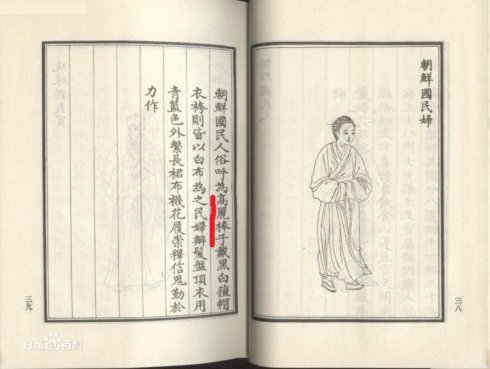 朝鮮國民婦
三八
朝鮮國民人俗呼為高麗棒子戴黑白氊帽
衣袴則皆以白布為之民婦辮髮盤頂衣用
青藍色外繫長裙布襪花履崇釋信鬼勤於
力作
三九
Bai百科